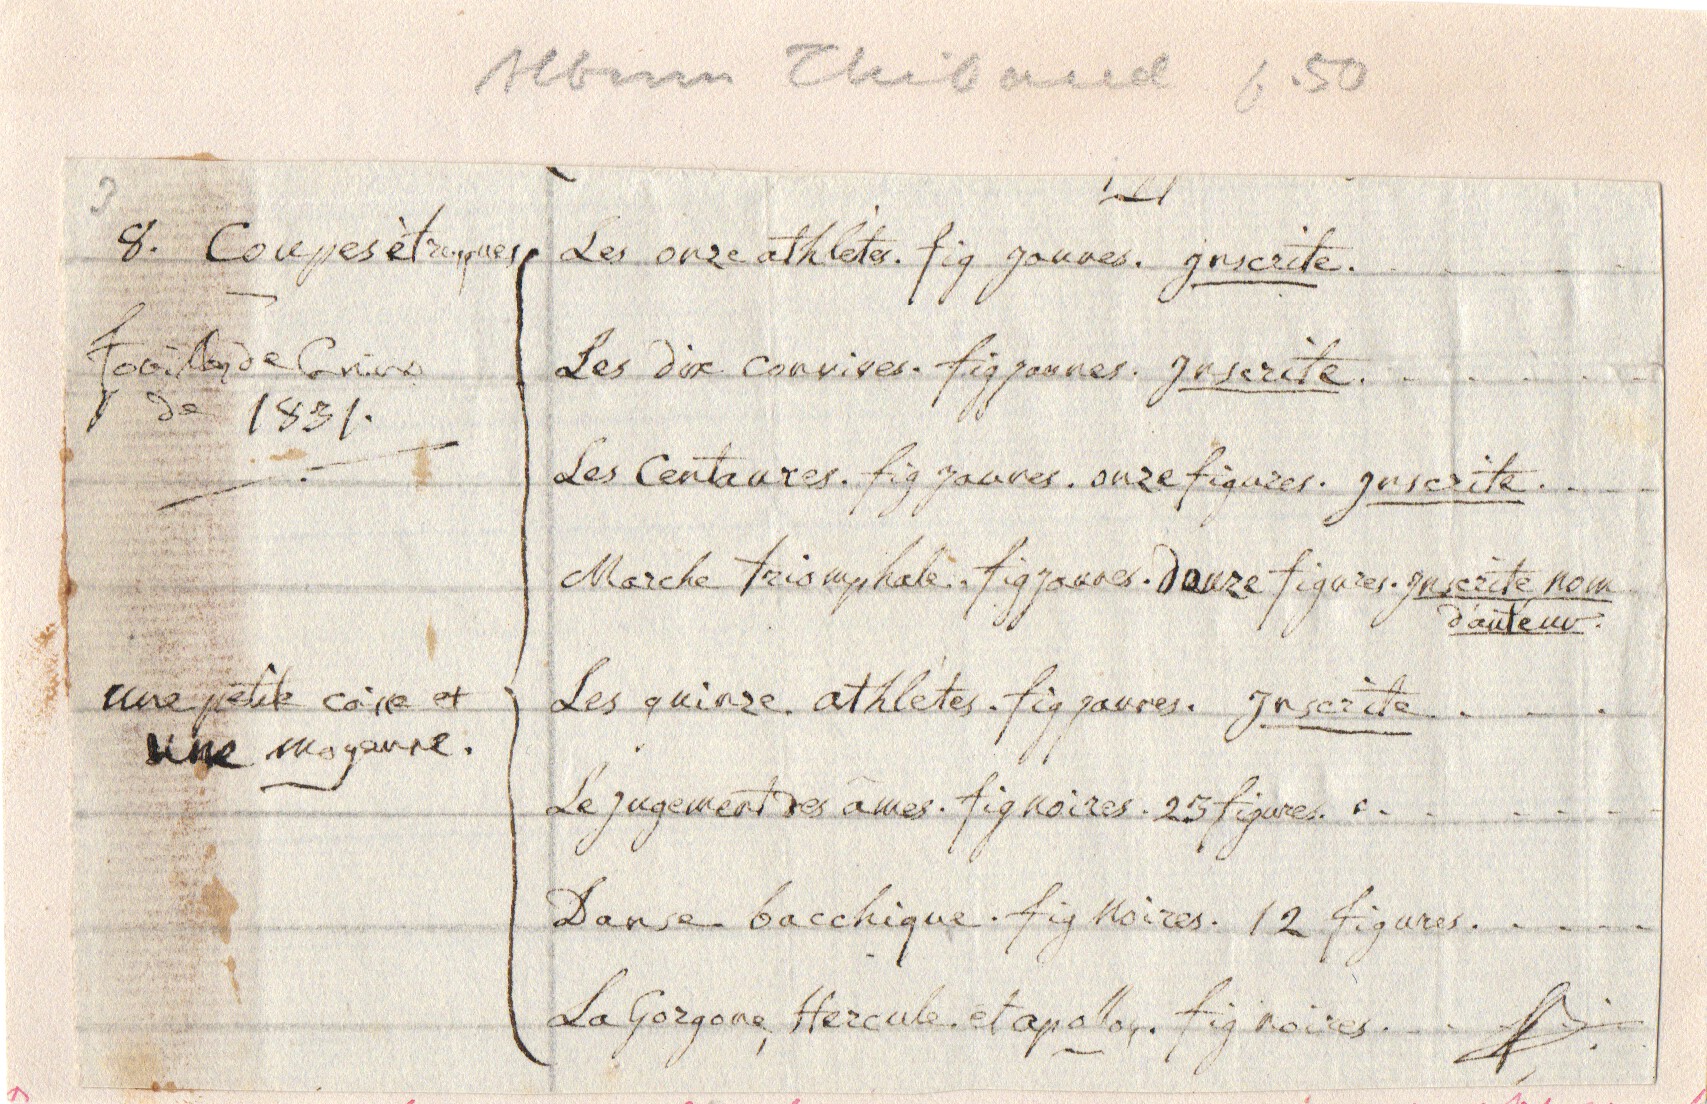 Album Thibaud f. 50
3
8. Coupes étrusques
Les onze athlètes. fig jaunes. jnscrite.
fouilles de Canino
de 1831.
Les dix convives. fig jaunes. jnscrite.
Les Centaures. fig jaunes. onze figures. jnscrite.
Marche triomphale. fig jaunes. Douze figures. jnscrite nom
d'auteur.
une petite caisse et
une moyenne.
Les quinze athlètes. fig jaunes. jnscrite
Le jugement des âmes. fig noires. 23 figures.
Danse bacchique. fig Noires. 12 figures.
La Gorgone, Hercule. et apollon. fig noires.